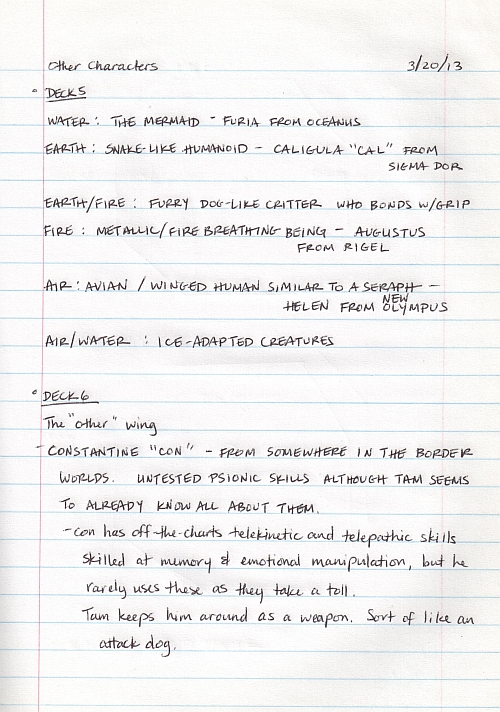 Other Characters 3/20/13
° DECK 5
WATER: THE MERMAID - FURIA FROM OCEANUS
EARTH: SNAKE-LIKE HUMANOID - CALIGULA "CAL" FROM
SIGMA DOR
EARTH/FIRE: FURRY DOG-LIKE CRITTER WHO BONDS W/GRIP
FIRE: METALLIC/FIRE BREATHING BEING - AUGUSTUS
FROM RIGEL
AIR: AVIAN / WINGED HUMAN SIMILAR TO A SERAPH -
HELEN FROM NEW OLYMPUS
AIR/WATER: ICE-ADAPTED CREATURES
° DECK 6
The "other" wing
- CONSTANTINE "CON" - FROM SOMEWHERE IN THE BORDER
WORLDS. UNTESTED PSIONIC SKILLS ALTHOUGH TAM SEEMS
TO ALREADY KNOW ALL ABOUT THEM.
- con has off-the-charts telekinetic and telepathic skills
skilled at memory & emotional manipulation, but he
rarely uses these as they take a toll.
Tam keeps him around as a weapon. Sort of like an
attack dog.